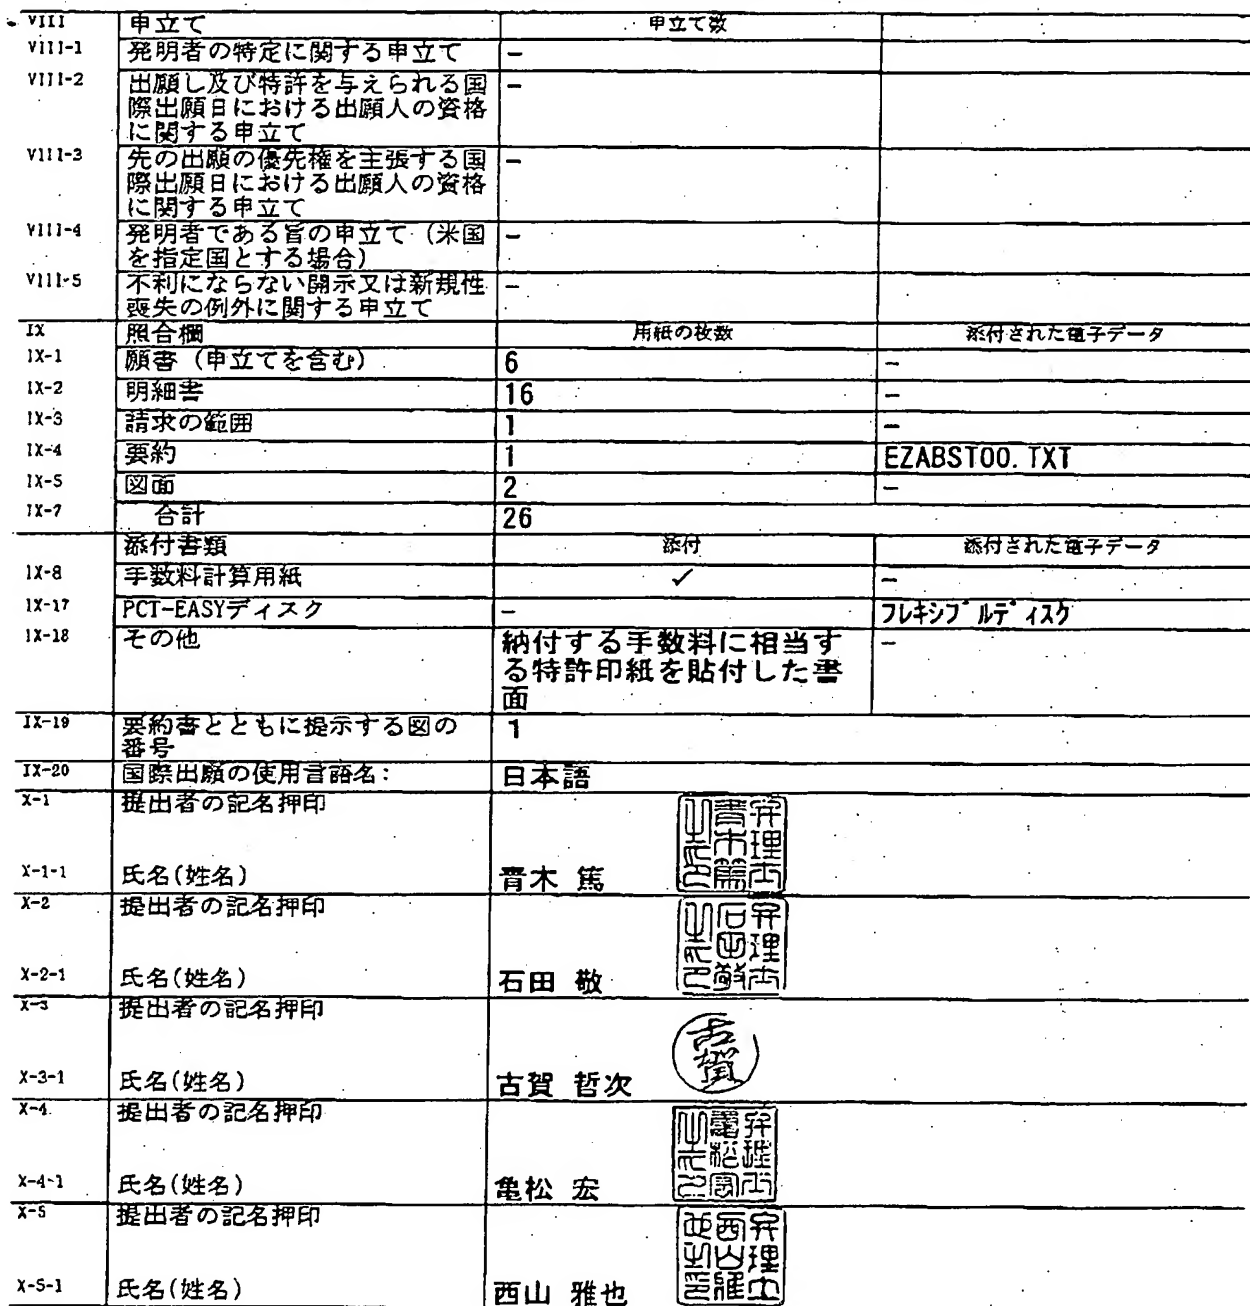 VIII 申立て 申立て数
VIII-1 発明者の特定に関する申立て -
VIII-2 出願し及び特許を与えられる国 -
際出願日における出願人の資格
に関する申立て
VIII-3 先の出願の優先権を主張する国 -
際出願日における出願人の資格
に関する申立て
VIII-4 発明者である旨の申立て（米国 -
を指定国とする場合）
VIII-5 不利にならない開示又は新規性 -
喪失の例外に関する申立て
IX 照合欄 用紙の枚数 添付された電子データ
IX-1 願書（申立てを含む） 6 -
IX-2 明細書 16 -
IX-3 請求の範囲 1 -
IX-4 要約 1 EZABST00.TXT
IX-5 図面 2 -
IX-7 合計 26
添付書類 添付 添付された電子データ
IX-8 手数料計算用紙 ✓ -
IX-17 PCT-EASYディスク - フレキシブルディスク
IX-18 その他 納付する手数料に相当す -
る特許印紙を貼付した書
面
IX-19 要約書とともに提示する図の 1
番号
IX-20 国際出願の使用言語名： 日本語
X-1 提出者の記名押印
弁理士青木篤之印
X-1-1 氏名(姓名) 青木 篤
X-2 提出者の記名押印
弁理士石田敬之印
X-2-1 氏名(姓名) 石田 敬
X-3 提出者の記名押印
古賀
X-3-1 氏名(姓名) 古賀 哲次
X-4 提出者の記名押印
X-4-1 氏名(姓名) 亀松 宏
X-5 提出者の記名押印
弁理士西山雅也之印
X-5-1 氏名(姓名) 西山 雅也